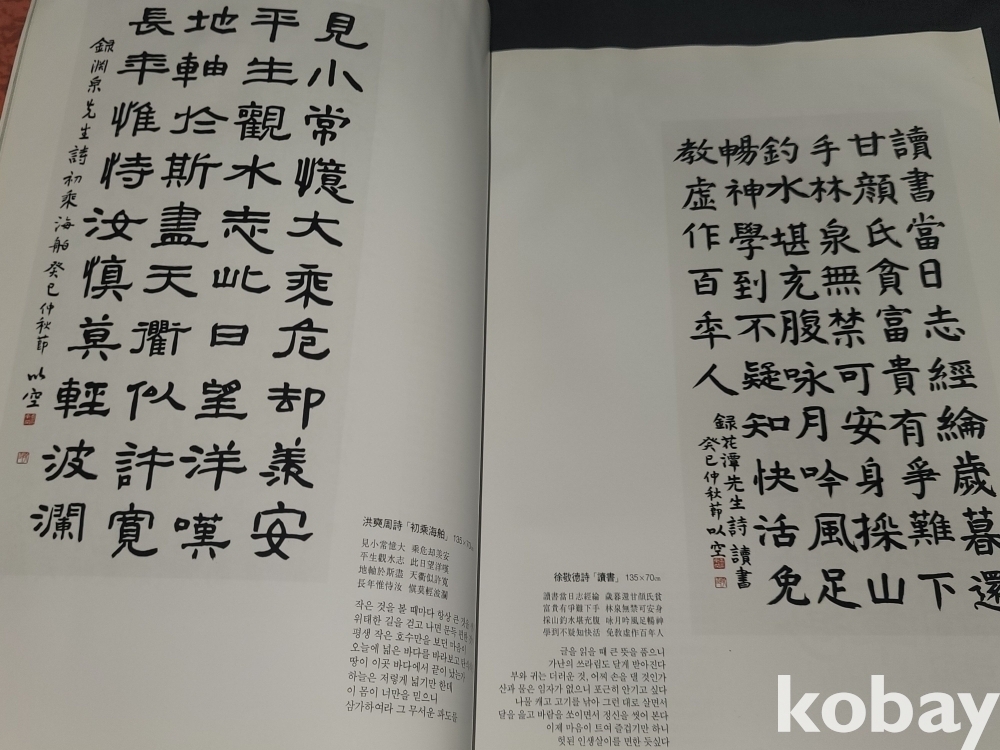 見小常憶大乘危却羨安
平生觀水志此日望洋嘆
地軸於斯盡天衢似許寬
長年惟恃汝慎莫輕波瀾
録淵泉先生詩初乘海舶癸巳仲秋節 以空
洪奭周詩「初乘海舶」 135×70㎝
見小常憶大 乘危却羨安
平生觀水志 此日望洋嘆
地軸於斯盡 天衢似許寬
長年惟恃汝 愼莫輕波瀾
작은 것을 볼 때마다 항상 큰 것을
위태한 길을 걷고 나면 문득 편안
평생 작은 호수만을 보던 마음이
오늘에 넓은 바다를 바라보고
땅이 이곳 바다에서 끝이 났는가
하늘은 저렇게 넓기만 한데
이 몸이 너만을 믿으니
삼가하여라 그 무서운 파도를
讀書當日志經綸歲暮還
甘顔氏貧富貴有爭難下
手林泉無禁可安身採山
釣水堪充腹咏月吟風足
暢神學到不疑知快活免
教虛作百年人
録花潭先生詩讀書
癸巳仲秋節以空
徐敬德詩「讀書」 135×70㎝
讀書當日志經綸 歲暮還甘顔氏貧
富貴有爭難下手 林泉無禁可安身
採山釣水堪充腹 咏月吟風足暢神
學到不疑知快活 免敎虛作百年人
글을 읽을 때 큰 뜻을 품으니
가난의 쓰라림도 달게 받아진다
부와 귀는 더러운 것, 어찌 손을 댈 것인가
산과 물은 임자가 없으니 포근히 안기고 싶다
나물 캐고 고기를 낚아 그런 대로 살면서
달을 읊고 바람을 쏘이면서 정신을 씻어 본다
이제 마음이 트여 즐겁기만 하니
헛된 인생살이를 면한 듯싶다
kobay